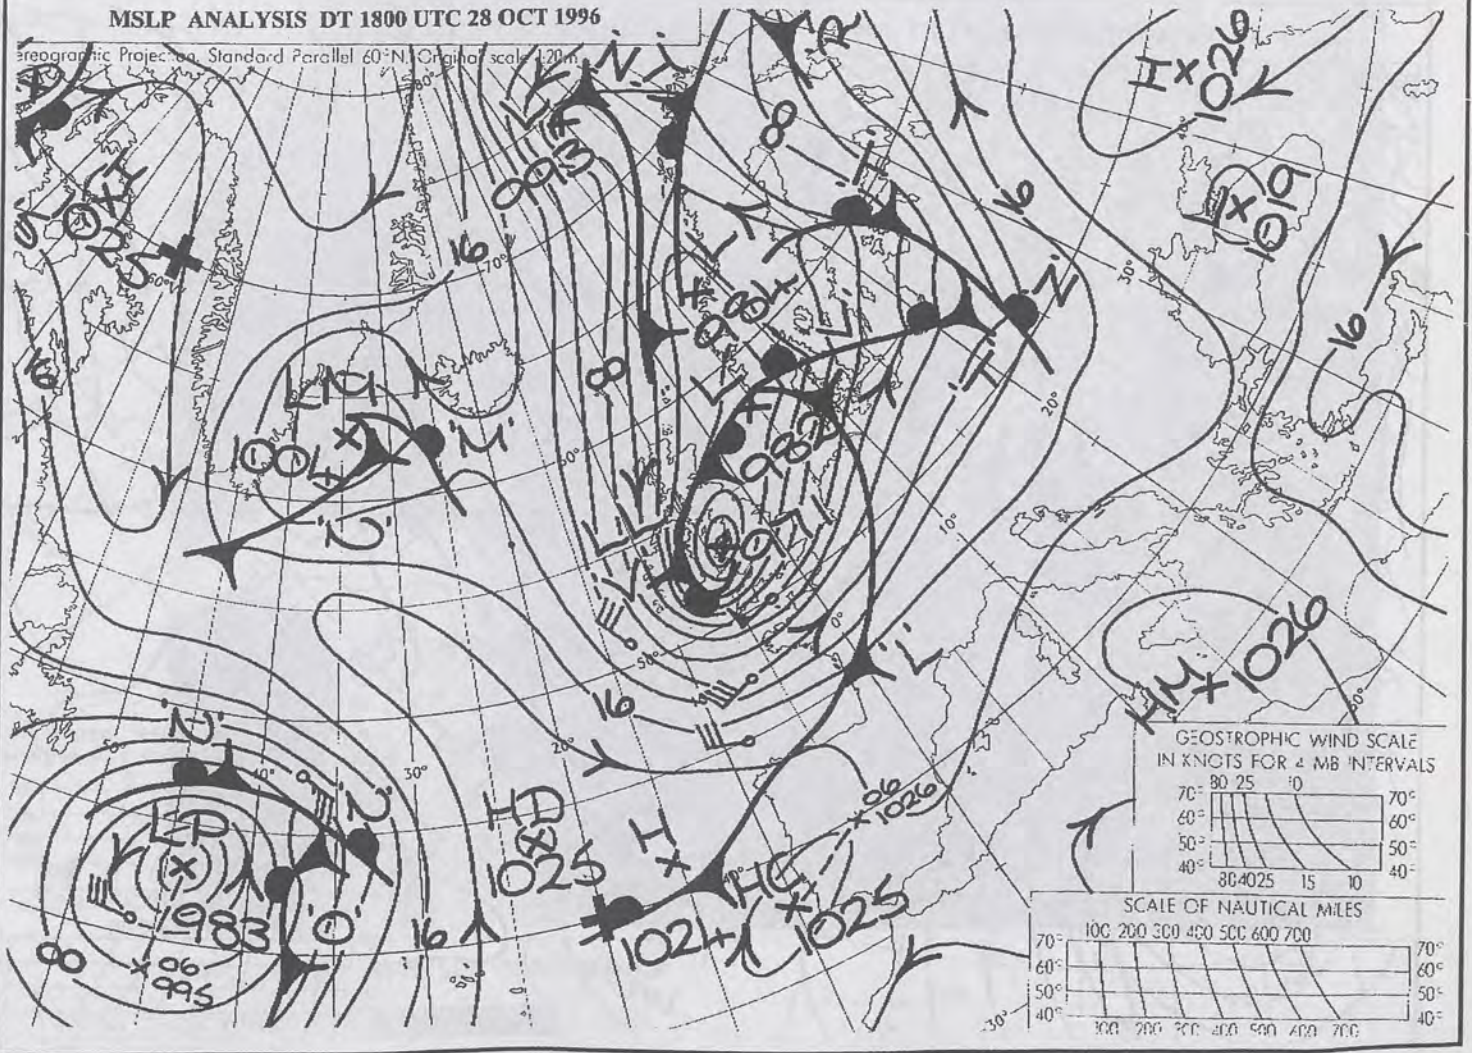 MSLP ANALYSIS DT 1800 UTC 28 OCT 1996
Stereographic Projection, Standard Parallel 60°N. Original scale 1:20m
H
1026
993
8
16
1019
16
70°
984
30°
16
8
20°
16
1004
'M'
982
971
10°
0°
'L'
50°
16
20°
30°
40°
HM
1026
'N'
LP
983
'O'
16
8
06
995
HD
1025
H
1024
HC
1025
06
1026
GEOSTROPHIC WIND SCALE
IN KNOTS FOR 4 MB INTERVALS
80 25 10
70° 70°
60° 60°
50° 50°
40° 40°
80 40 25 15 10
SCALE OF NAUTICAL MILES
100 200 300 400 500 600 700
70° 70°
60° 60°
50° 50°
40° 40°
100 200 300 400 500 600 700
30°